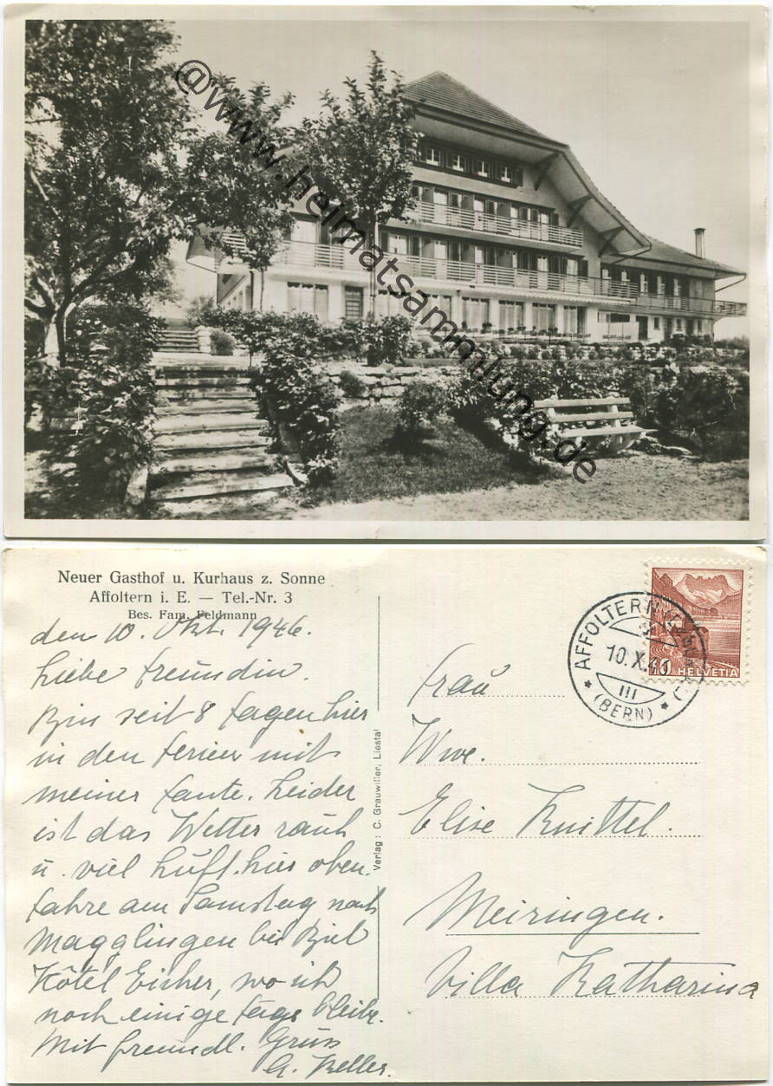 @www.heimatsammlung.de
Neuer Gasthof u. Kurhaus z. Sonne
Affoltern i. E. — Tel.-Nr. 3
Bes. Fam. Feldmann
den 10. Okt. 1946.
Liebe Freundin.
Bin seit 8 Tagen hier
in den Ferien mit
meiner Tante. Leider
ist das Wetter rauh
u. viel Luft hier oben.
Fahre am Samstag nach
Magglingen bei Biel
Hôtel Eicher, wo ich
noch einige Tage bleibe.
Mit freundl. Gruss
A. Keller.
Verlag: C. Grauwiller, Liestal
AFFOLTERN
10.X.46
III
(BERN)
10 HELVETIA
Frau
Wwe.
Elise Knittel.
Meiringen.
Villa Katharina